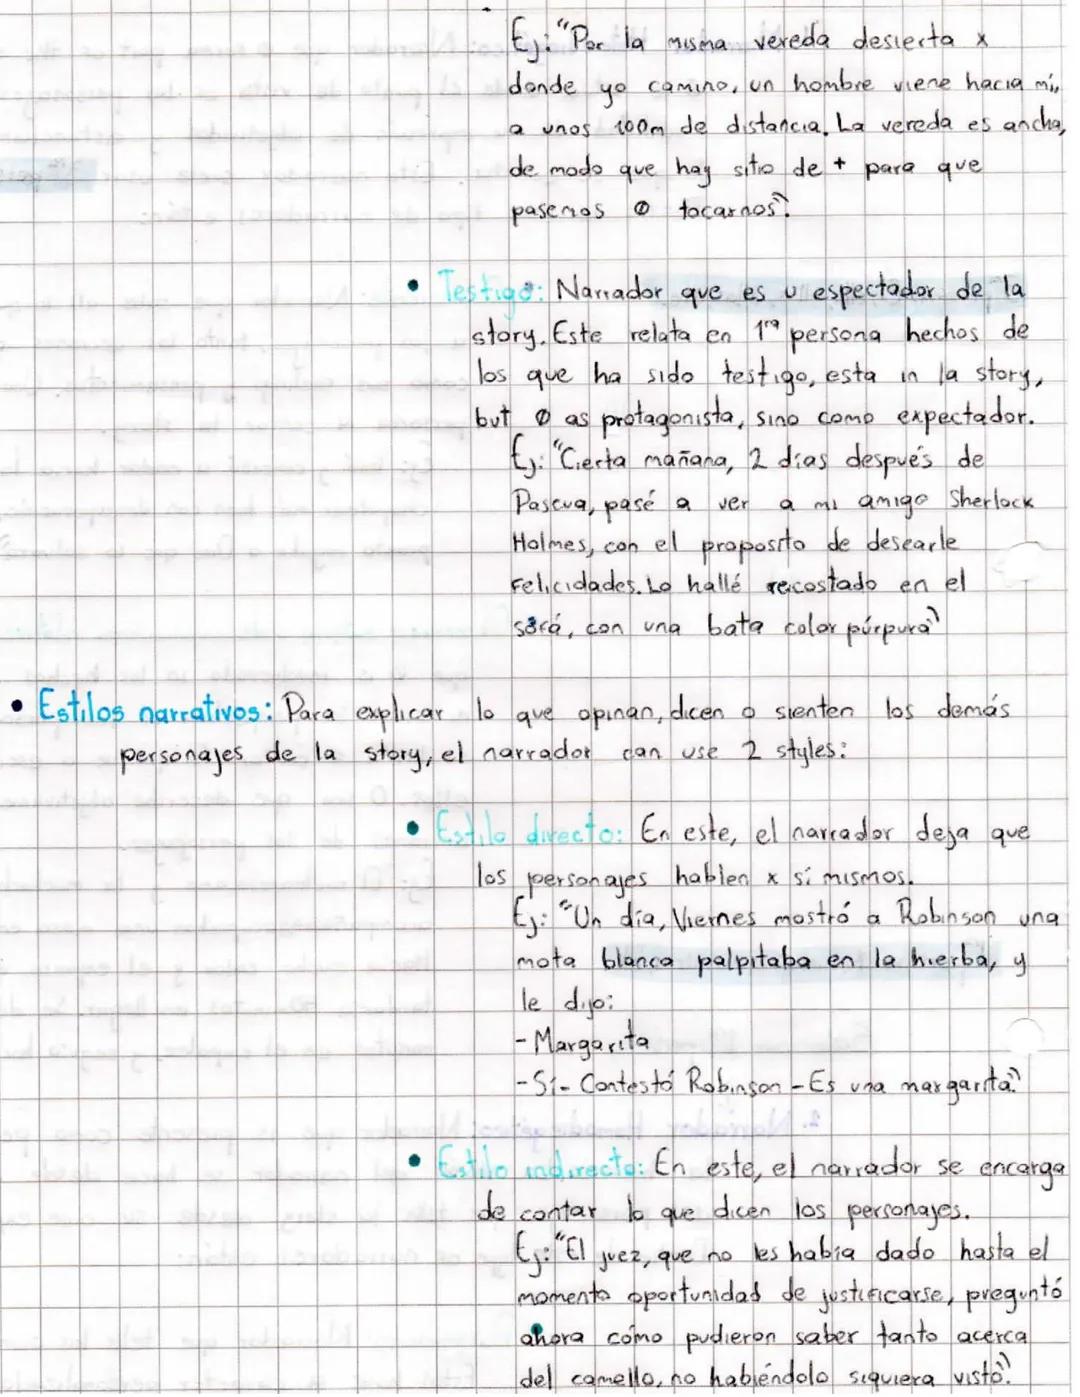 Ej: "Por la misma vereda desierta x
donde yo camino, un hombre viene hacia mí,
a unos 100m de distancia. La vereda es ancha,
de modo que hay sitio de + para que
pasemos Ø tocarnos".
• Testigo: Narrador que es u espectador de la
story. Este relata en 1ra persona hechos de
los que ha sido testigo, esta in la story,
but Ø as protagonista, sino como expectador.
Ej: "Cierta mañana, 2 días después de
Pascua, pasé a ver a mi amigo Sherlock
Holmes, con el proposito de desearle
felicidades. Lo hallé recostado en el
sofá, con una bata color púrpura"
• Estilos narrativos: Para explicar lo que opinan, dicen o sienten los demás
personajes de la story, el narrador can use 2 styles:
• Estilo directo: En este, el narrador deja que
los personajes hablen x sí mismos.
Ej: "Un día, Viernes mostró a Robinson una
mota blanca palpitaba en la hierba, y
le dijo:
- Margarita
- Sí - Contestó Robinson - Es una margarita"
• Estilo indirecto: En este, el narrador se encarga
de contar lo que dicen los personajes.
Ej: "El juez, que no les había dado hasta el
momento oportunidad de justificarse, preguntó
ahora cómo pudieron saber tanto acerca
del camello, no habiéndolo siquiera visto".